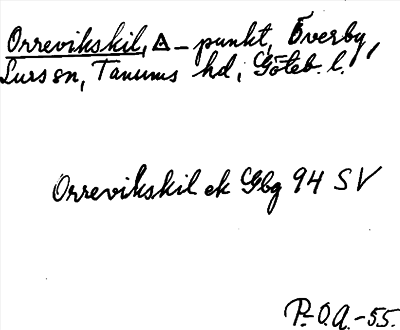 Orrevikskil, △-punkt, Överby,
Lurs sn, Tanums hd, Göteb. l.
Orrevikskil ek Gbg 94 SV
P.O.A.-55.